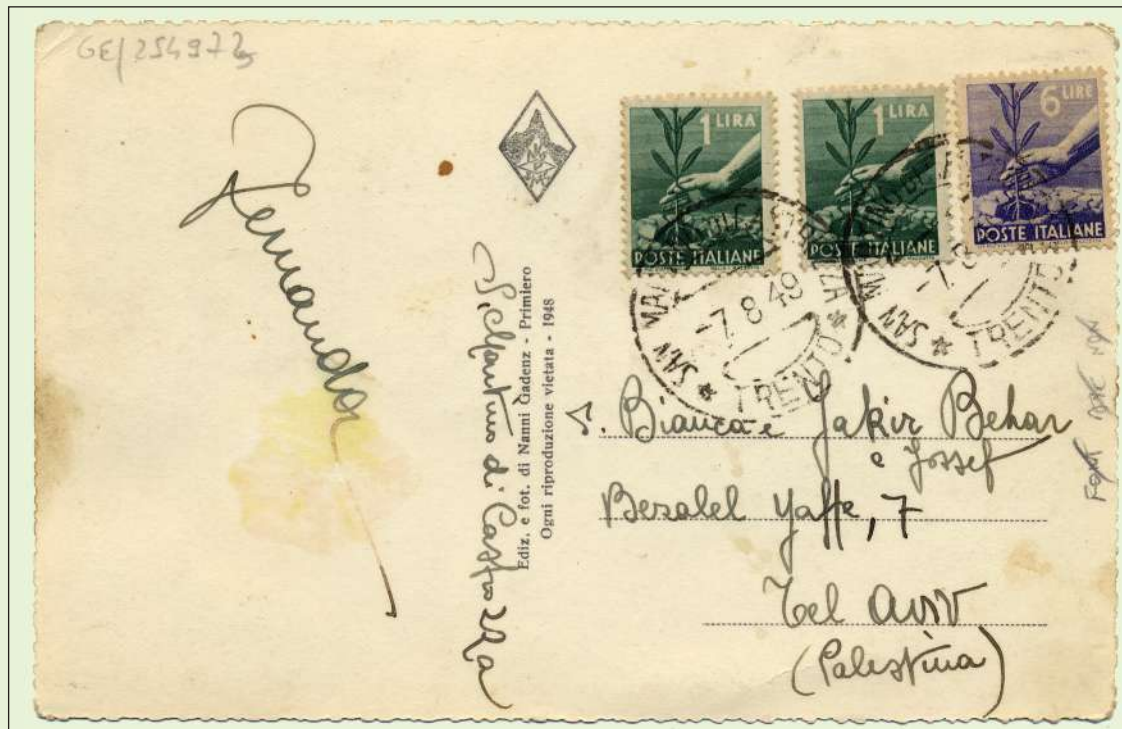 GE/254972
Fernanda
S. Martino di Castrozza
Ediz. e fot. di Nanni Gadenz - Primiero
Ogni riproduzione vietata - 1948
1 LIRA
POSTE ITALIANE
1 LIRA
POSTE ITALIANE
6 LIRE
POSTE ITALIANE
-7 8 49
★ TRENTO ★
SAN
-7 8
★ TRENTO
S. Bianca e Jakir Behar
e Jossef
Bezalel Yaffe, 7
Tel Aviv
(Palestina)